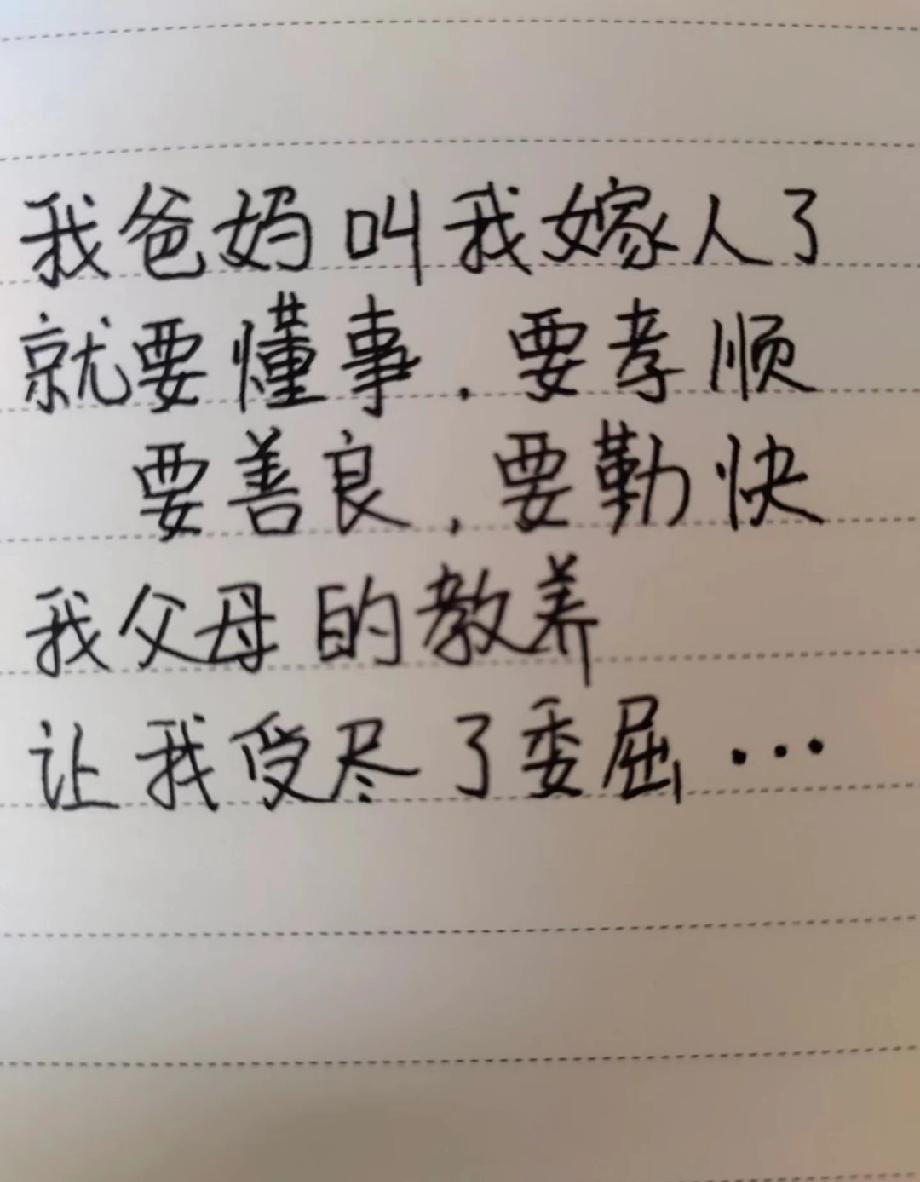 我爸妈叫我嫁人了
就要懂事.要孝顺
要善良,要勤快
我父母的教养
让我受尽了委屈…